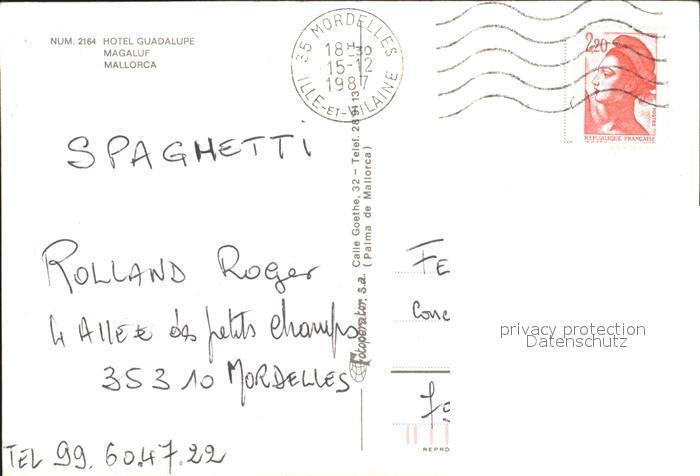 NUM. 2164 HOTEL GUADALUPE
MAGALUF
MALLORCA
35 MORDELLES
18H30
15-12
1987
ILLE-ET-VILAINE
2,20
POSTES
REPUBLIQUE FRANÇAISE
SPAGHETTI
ROLLAND Roger
4 Allée des petits champs
35310 MORDELLES
TEL 99.60.47.22
Fotoperator, s.a. Calle Goethe, 32 - Telef. 28 91 13
(Palma de Mallorca)
FE
Conc
75
REPRO
privacy protection
Datenschutz